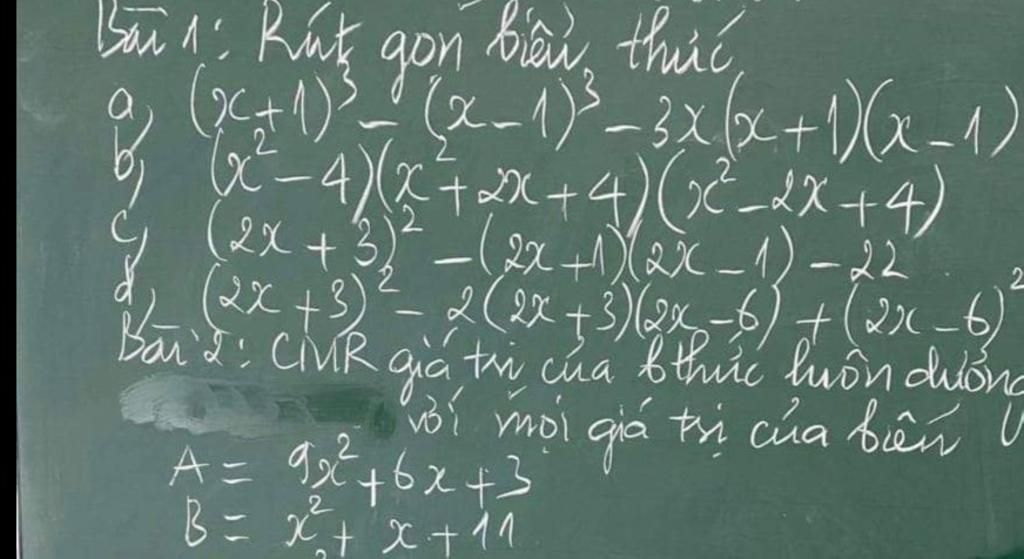 Bài 1: Rút gọn biểu thức
a, (x+1)³ - (x-1)³ - 3x(x+1)(x-1)
b, (x² - 4)(x² + 2x + 4)(x² - 2x + 4)
c, (2x + 3)² - (2x+1)(2x-1) - 22
d, (2x+3)² - 2(2x+3)(2x-6) + (2x-6)²
Bài 2: CMR giá trị của bthức luôn dương
với mọi giá trị của biến
A = 9x² + 6x + 3
B = x² + x + 11